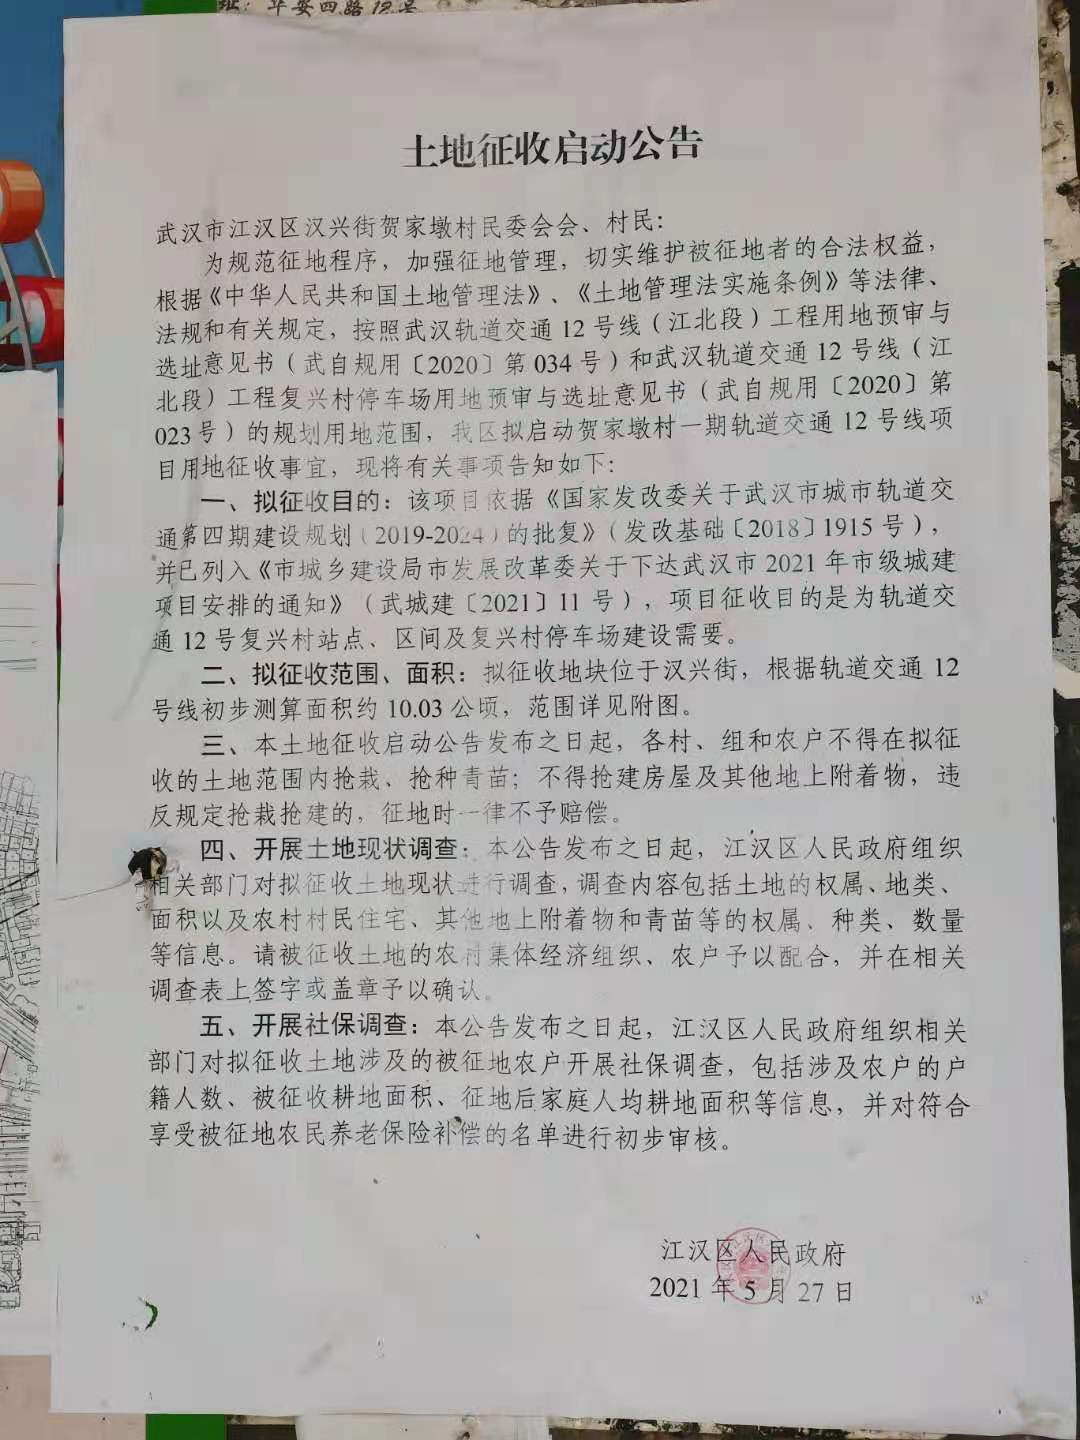 址：华安四路12号
土地征收启动公告
武汉市江汉区汉兴街贺家墩村民委会会、村民：
为规范征地程序，加强征地管理，切实维护被征地者的合法权益，
根据《中华人民共和国土地管理法》、《土地管理法实施条例》等法律、
法规和有关规定，按照武汉轨道交通12号线（江北段）工程用地预审与
选址意见书（武自规用〔2020〕第034号）和武汉轨道交通12号线（江
北段）工程复兴村停车场用地预审与选址意见书（武自规用〔2020〕第
023号）的规划用地范围，我区拟启动贺家墩村一期轨道交通12号线项
目用地征收事宜，现将有关事项告知如下：
一、拟征收目的：该项目依据《国家发改委关于武汉市城市轨道交
通第四期建设规划（2019-2024）的批复》（发改基础〔2018〕1915号），
并已列入《市城乡建设局市发展改革委关于下达武汉市2021年市级城建
项目安排的通知》（武城建〔2021〕11号），项目征收目的是为轨道交
通12号复兴村站点、区间及复兴村停车场建设需要。
二、拟征收范围、面积：拟征收地块位于汉兴街，根据轨道交通12
号线初步测算面积约10.03公顷，范围详见附图。
三、本土地征收启动公告发布之日起，各村、组和农户不得在拟征
收的土地范围内抢栽、抢种青苗；不得抢建房屋及其他地上附着物，违
反规定抢栽抢建的，征地时一律不予赔偿。
四、开展土地现状调查：本公告发布之日起，江汉区人民政府组织
相关部门对拟征收土地现状进行调查，调查内容包括土地的权属、地类、
面积以及农村村民住宅、其他地上附着物和青苗等的权属、种类、数量
等信息。请被征收土地的农村集体经济组织、农户予以配合，并在相关
调查表上签字或盖章予以确认。
五、开展社保调查：本公告发布之日起，江汉区人民政府组织相关
部门对拟征收土地涉及的被征地农户开展社保调查，包括涉及农户的户
籍人数、被征收耕地面积、征地后家庭人均耕地面积等信息，并对符合
享受被征地农民养老保险补偿的名单进行初步审核。
江汉区人民政府
2021年5月27日